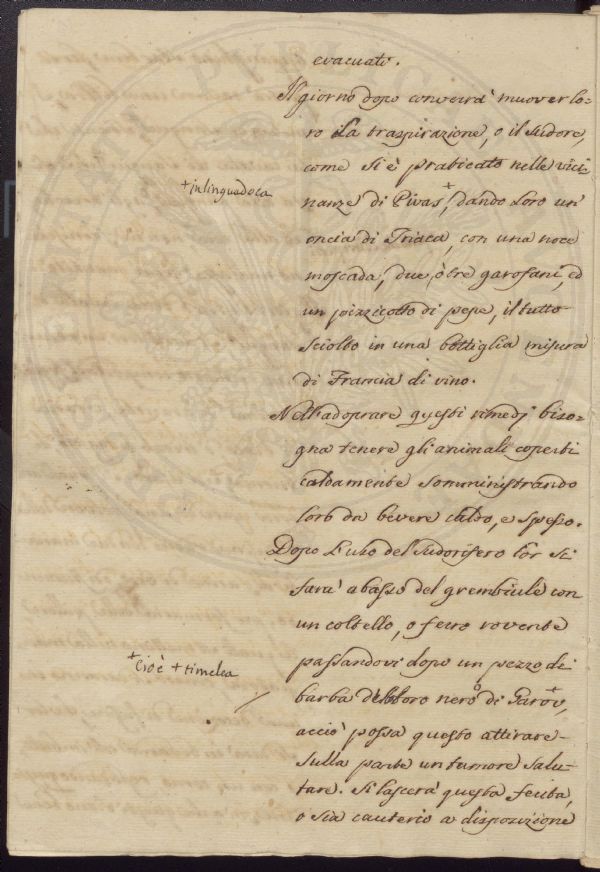 evacuato.
Il giorno dopo converrà muover lo-
ro la traspirazione, o il sudore,
come si è praticato nelle vici-
+ in linguadoca
nanze di Vivas+, dando loro un'
oncia di Triaca, con una noce
moscada, due, ò tre garofani, ed
un pizzicotto di pepe, il tutto
sciolto in una bottiglia misura
di Francia di vino.
Nell'adoprare questi rimedj biso-
gna tenere gli animali coperti
caldamente somministrando
loro da bevere caldo, e spesso.
Dopo l'uso del sudorifero lor si
farà abasso del grembiule con
un coltello, o ferro rovente
+ Cioè + timelea
passandovi dopo un pezzo di
barba d'elloboro nero, ò di Garòu+,
acciò possa questo attirare
sulla parte un tumore salu-
tare. Si lascerà questa ferita,
o sia cauterio a disposizione